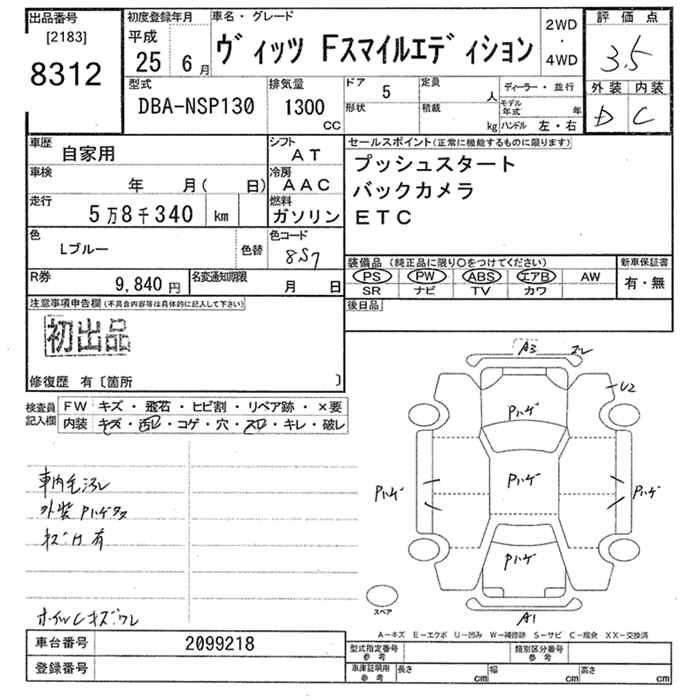 出品番号
[2183]
8312
初度登録年月
平成
25 6月
車名・グレード
ヴィッツ Fスマイルエディション
2WD
・
4WD
評価点
3.5
外装 内装
D C
型式
DBA-NSP130
排気量
1300
CC
ドア
5
形状
定員
人
積載
kg
ディーラー・並行
モデル年式 年
ハンドル 左・右
車歴
自家用
シフト
AT
車検
年 月( 日)
冷房
AAC
走行
5万8千340 km
燃料
ガソリン
色
Lブルー
色替
色コード
8S7
R券
9,840円
名変通知期限
月 日
セールスポイント(正常に機能するものに限ります)
プッシュスタート
バックカメラ
ETC
装備品(純正品に限り○をつけてください)
PS PW ABS エアB AW
SR ナビ TV カワ
新車保証書
有・無
後日品
注意事項申告欄(不具合内容等は具体的に記入して下さい)
初出品
修復歴 有〔箇所 〕
検査員
記入欄
FW キズ・飛石・ヒビ割・リペア跡・×要
内装 キズ・汚レ・コゲ・穴・スレ・キレ・破レ
外装Pハゲ
キズ凹有
ホイルキズ
A3
U2
Pハゲ
Pハゲ
Pハゲ
Pハゲ
Pハゲ
A1
スペア
A-キズ E-エクボ U-凹み W-補修跡 S-サビ C-腐食 XX-交換済
車台番号
2099218
登録番号
型式指定番号
参考
類別区分番号
参考
車庫証明用
参考
長さ cm
幅 cm
高さ cm